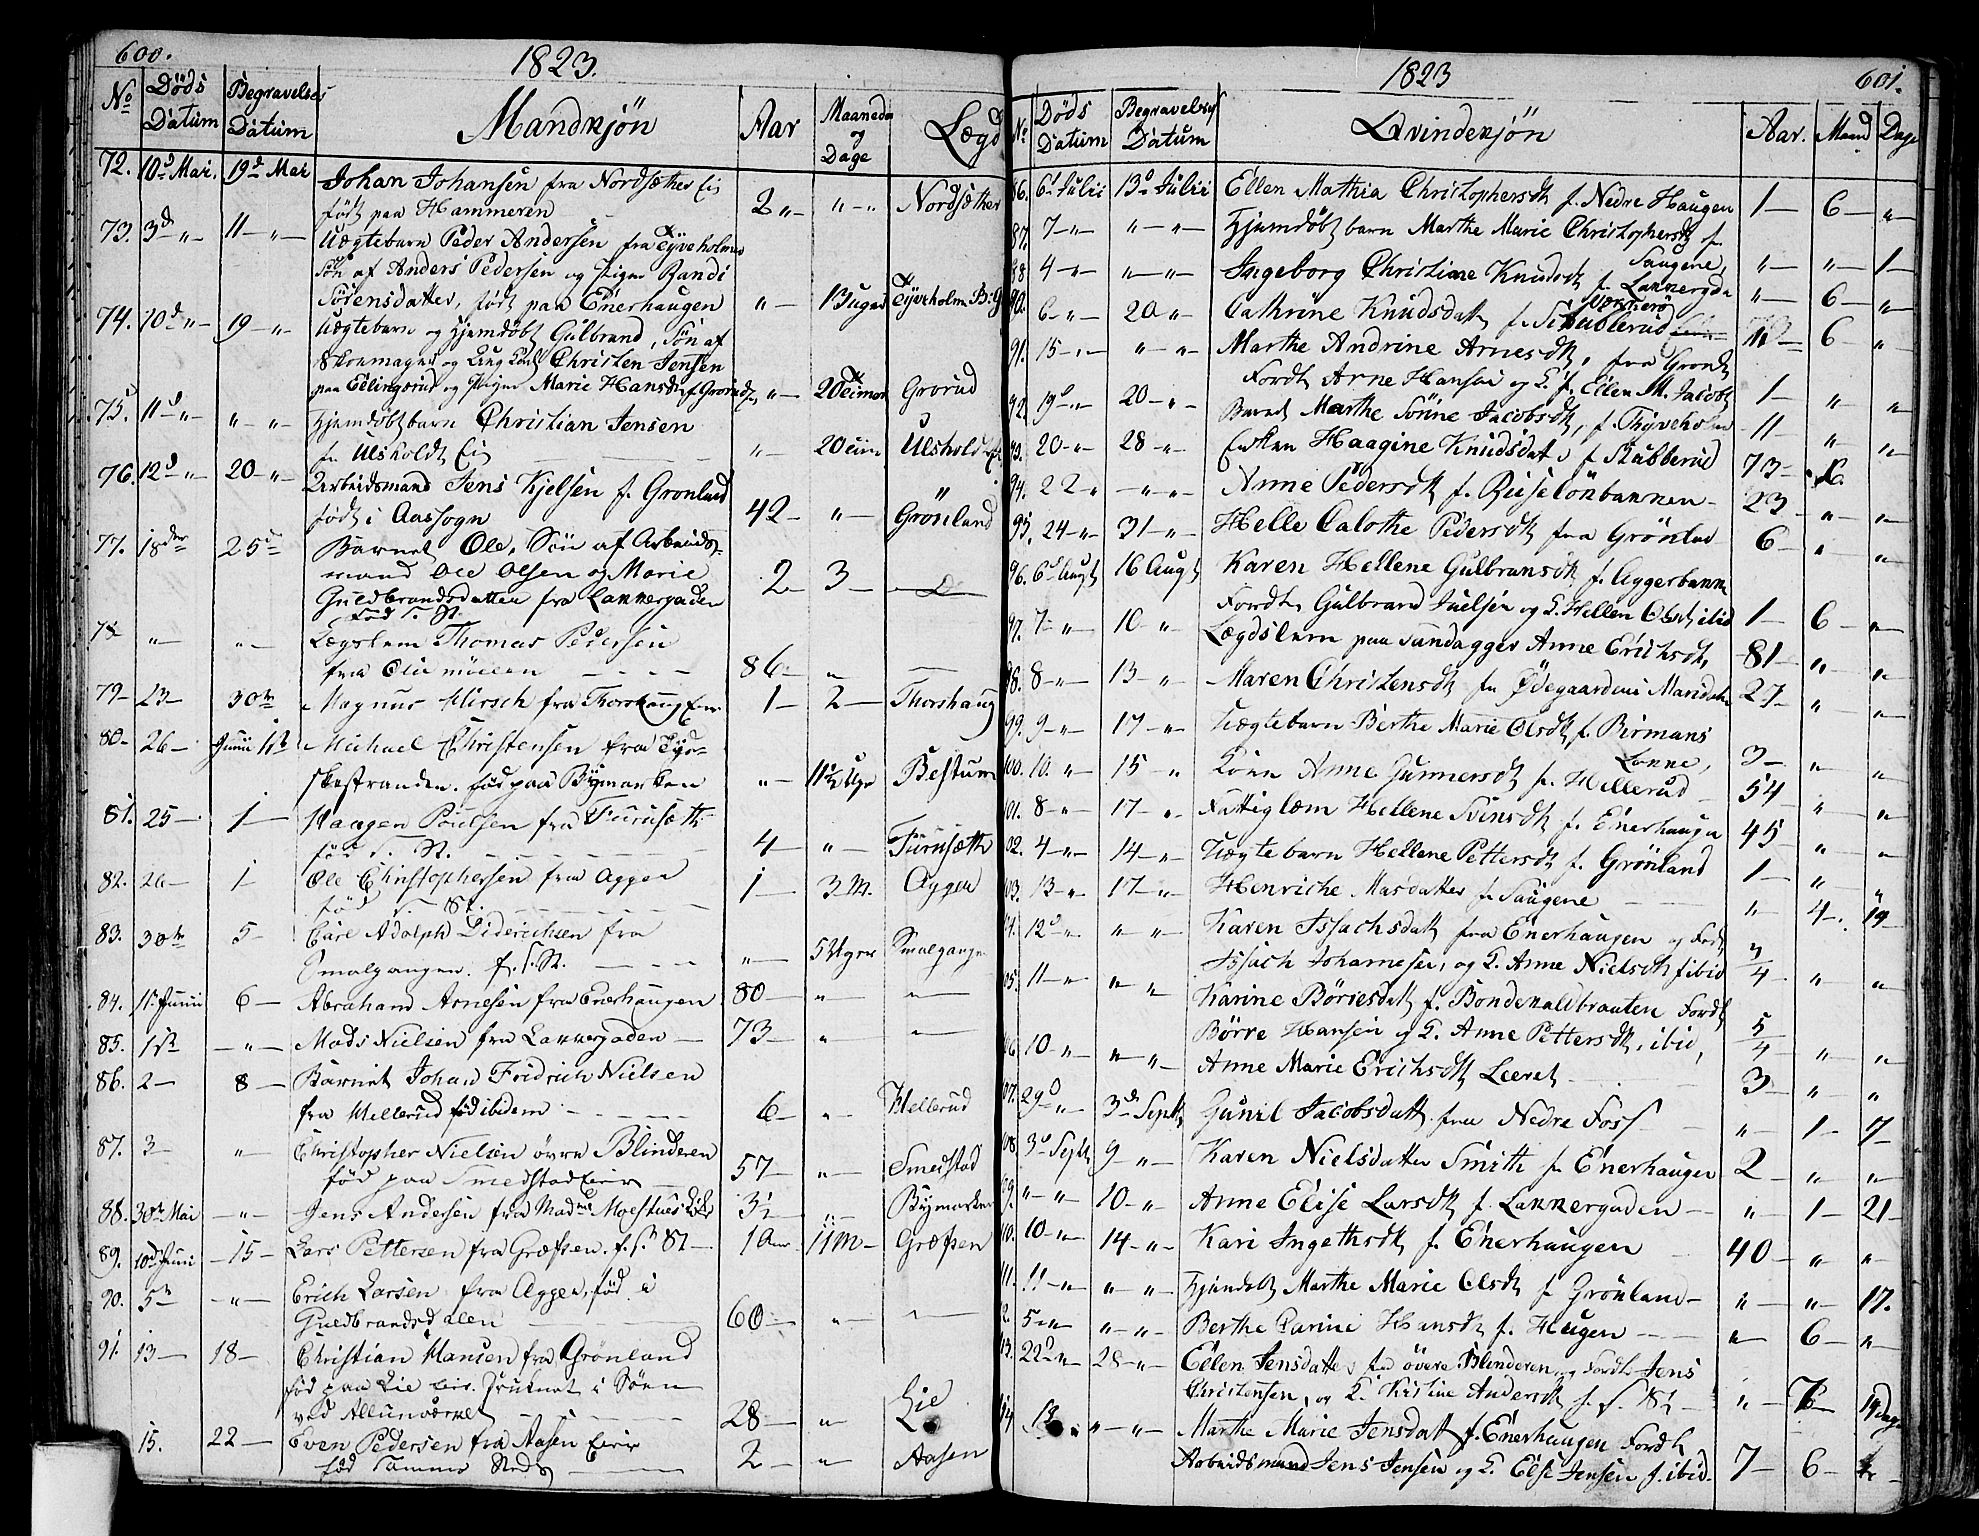 600.
1823.
No Döds Datum Begravelses Datum Mandkjön Aar Maaneder og Dage Lægd
72. 10d Mai. 19d Mai Johan Johansen fra Nordsæther Eie
født paa Hammeren 2 „ „ „ Nordsæther
73. 3d „ 11 „ Uægtebarn Peder Andersen fra Tyveholmen
Søn af Anders Pedersen og Pige Randi
Sörensdatter, født paa Enerhaugen „ 13 uger Tyveholm
74. 10d „ 19 „ Uægtebarn og hjemdøbt Gulbrand, Søn af
Skoemager og Ung Karl Christen Jensen
paa Ellingsrud og Pige Marie Hansdr f. Grorud „ Grorud
75. 11d „ „ „ Hjemdøbt barn Christian Jensen
fr. Ulsholdt Eie „ Ulsholdt
76. 12d „ 20 „ Arbeidsmand Jens Kjelsen f. Gronland
født i Aassogn 42 „ Grönland
77. 18de 25de Barnet Ole, Sön af Arbeids-
mand Ole Olsen og Marie
Guldbrandsdatter fra Lakkergaden
Född s. St. 2 3 Do
78 „ „ Lægslem Thomas Pedersen
fra Oliemüllen 86 „
79 23 30te Magnus Hirsch fra Thorshaug Eier 1 2 Thorshaug
80 26 Junii 1ste Michael Christensen fra Tyd-
skestranden. föd paa Bÿmarken „ 11½ Uge Bestum
81. 25 1 Haagen Poulsen fra Furusæth
föd s. St. 4 „ Furusæth
82. 26 1 Ole Christophersen fra Agger
föd s. St. 1 3 M. Agger
83. 30te 5 Carl Adolph Diderichsen fra
Smalgangen. f. s. St. „ 5 Uger Smalgangen
84. 1ste Junii 6 Abraham Arnesen fra Enerhaugen 80 „
85. 1ste „ Mads Nielsen fra Lakkergaden 73 „
86. 2 8 Barnet Johan Fridrich Nielsen
fra Hellerud föd ibidem 6 „ Hellerud
87. 3 „ Christopher Nielsen övre Blinderen
föd paa Smedstad Eier 57 „ Smedstad
88. 30te Mai „ Jens Andersen fra Madme Moestues Løkke 3½ „ Bymarken
89. 10de Junii 15 Lars Pettersen fra Græfsen. f. s. St. 1 Aar 11 M Græfsen
90. 5te „ Erich Larsen fra Agger, föd i
Guldbrandsdalen 60 „
91. 13 18 Christian Hansen fra Grönland
föd paa Lie Eie. Druknet i Söen
ved Allunværket 28 „ Lie
15. 22 Even Pedersen fra Aasen Eier
föd samme Sted 2 „ Aasen
1823
601.
No Döds Datum Begravelses Datum Qvindekjön Aar. Maand Dage
86. 6d Julii 13d Julii Ellen Mathia Christophersdt f. Nedre Haugen 1 6 „
87. 7 „ „ „ Hjemdöbt barn Marthe Marie Christophersdt f.
Saugene, „ „ 1
88. 4 „ „ „ Ingeborg Christine Knudsdt f. Lakkergdn „ 6 „
90. 6 „ 20 „ Cathrine Knudsdatt f. Stubberud 6 „
91. 15 „ „ „ Marthe Andrine Arnesdt, fra Gronl
Fordt Arne Hansen og K. f. Ellen M. Jacobsdt 1 „ „
92. 19d „ 20 „ Barnet Marthe Sönne Jacobsdt, f. Thyveholm 11 „ „
93. 20 „ 28 „ Enken Haagine Knudsdatt f. Stubberud 73
94. 22 „ „ „ Anne Pedersdt f. Riiseløkbakken 23 „ „
95. 24 „ 31 „ Helle Calothe Pedersdt fra Grönlad 6 „ „
96. 6d Augt 16 Augt Karen Hellene Gulbransdt f. Aggerbakken
Fordt. Gulbrand Juelsen og K. Hellen Olsdt ibid 1 6 „
97. 7 „ 10 „ Lægdslem paa Sandagger Anne Erichsdt 81 „ „
98. 8 „ 13 „ Maren Christensdt fra Ødegaardens Maridalen 27 „ „
99. 9 „ 17 „ Uægtebarn Berthe Marie Olsdt f. Birmans
Løkke, 3 „ „
100. 10. „ 15 „ Kone Anne Gunnersdt fr. Hellerud 54 „ „
101. 8 „ 17 „ Fattiglæm Hellene Svensdt f. Enerhaugen 45 „ „
102. 4 „ 14 „ Uægtebarn Hellene Pettersdt f. Grönland 1 „ „
103. 13 „ 17 „ Henriche Masdatter f. Saugene „ 4 19
104. 12d „ „ „ Karen Issachsdatt fra Enerhaugen og Fordt
Issach Johannesen, og K. Anne Nielsdt f ibid 3/4 „ „
105. 11 „ „ „ Karine Börresdatt f. Bondekallbraaten Fordt
Börre Hansen og K. Anne Pettersdt, ibid, 5/4 „ „
106. 10 „ „ „ Anne Marie Erichsdt Leeret 3 „ „
107. 29d „ 3d Septb Gunil Jacobsdatt fra Nedre Foss „ 1 7
108. 3d Septb 9 „ Karen Nielsdatter Smith fr Enerhaugen 2 „ „
109. „ „ 10 „ Anne Elise Larsdt f. Lakkergaden „ 1 21
110. 10 „ 14 „ Kari Ingethsdt f. Enerhaugen 40 „ „
111. 11 „ „ „ Hjemdøbt Marthe Marie Olsdt f Grönland „ „ 17.
112. 5 „ „ „ Berthe Carine Hansdt f. Haugen „ 6 „
113. 22d „ 28 „ Ellen Jensdatter fra övere Blinderen og Fordt. Jens
Christensen, og K. Kristine Andersdt f. s. St „ 19 Dage
114 13 „ „ „ Marthe Marie Jensdatt f. Enerhaugen Fordt
Arbeidsmand Jens Jensen og K. Else Jensen f. ibid 7 6